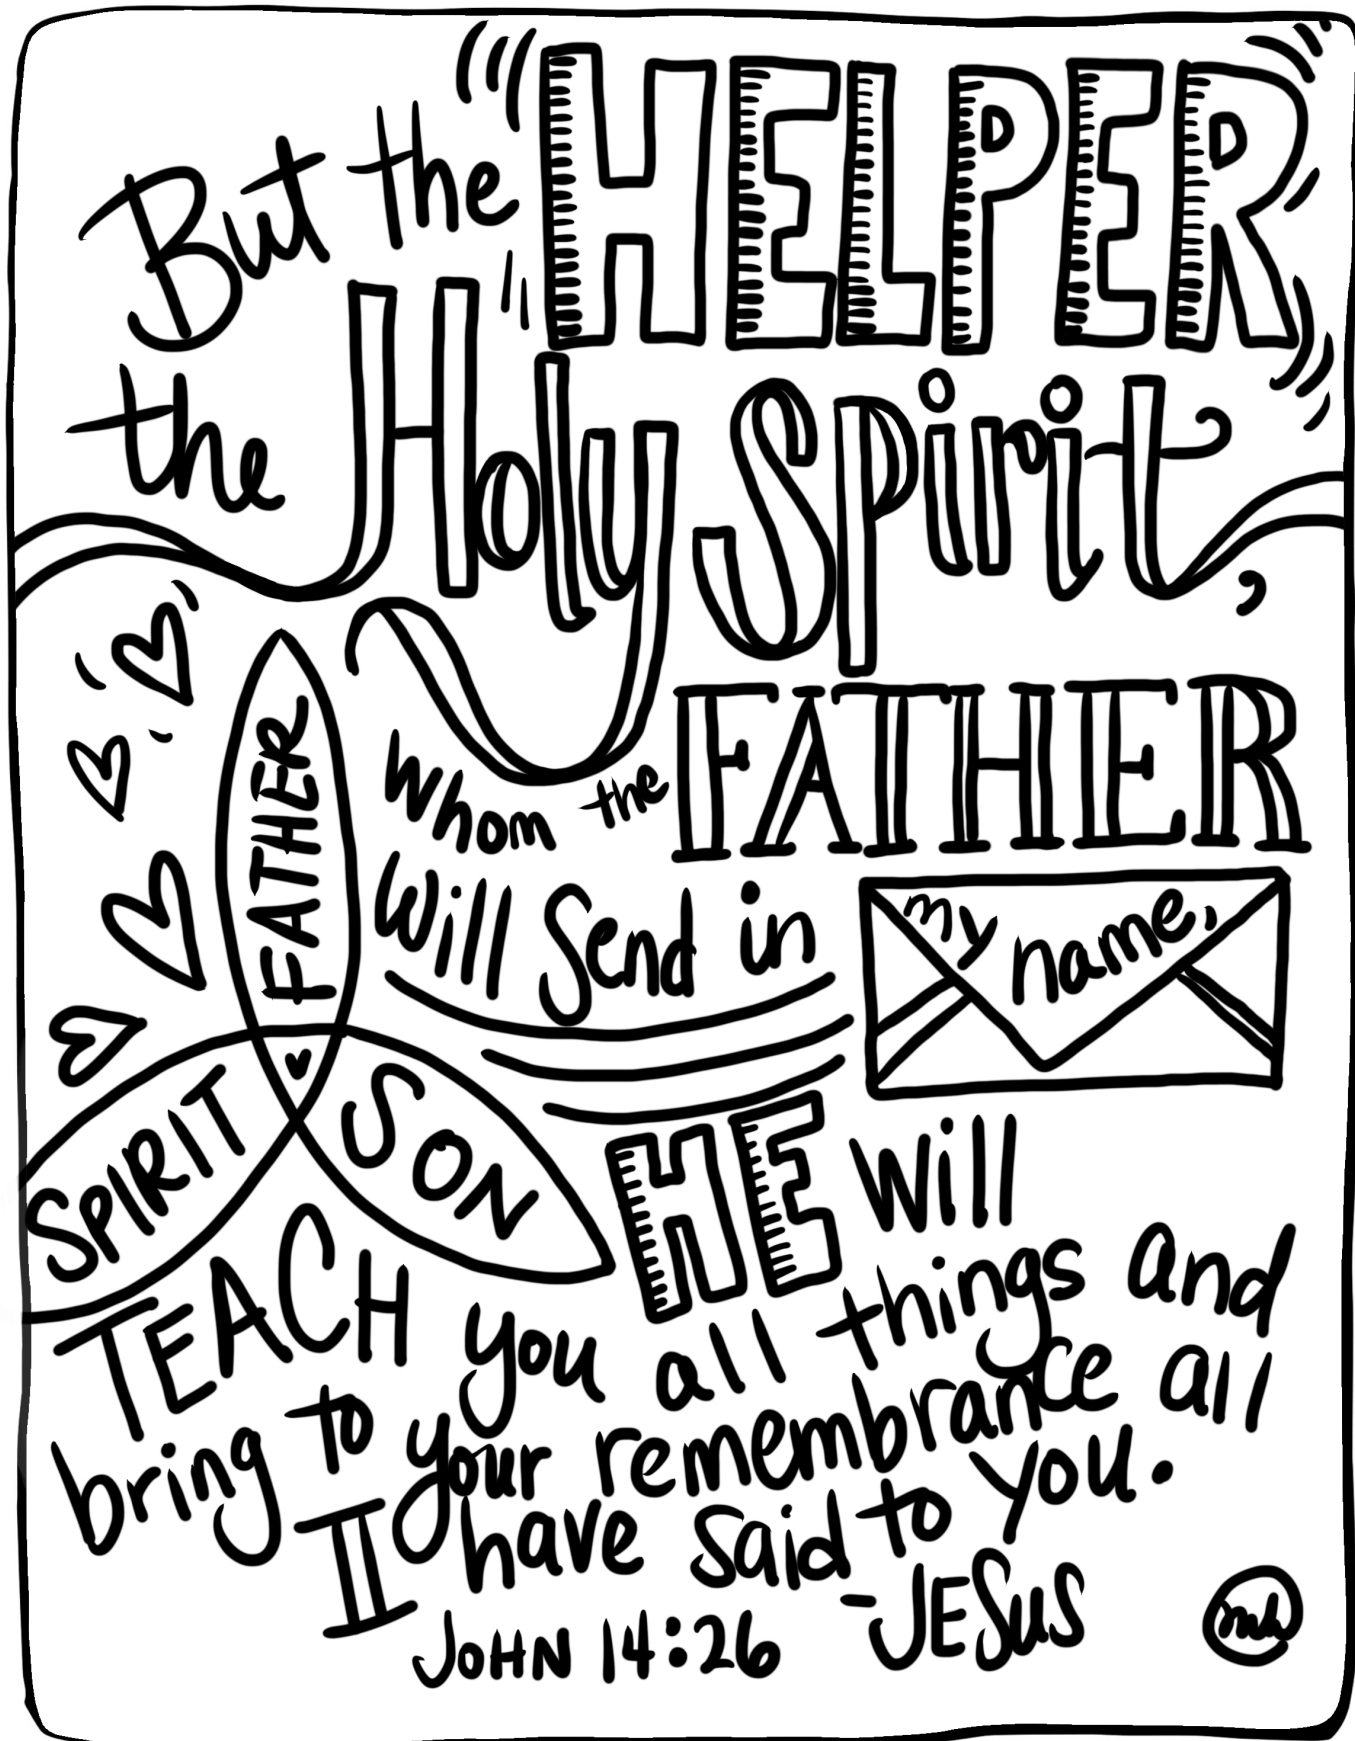 But the HELPER
the Holy Spirit,
Whom the FATHER
Will Send in my name,
FATHER
SPIRIT
SON
HE Will
TEACH you all things and
bring to your remembrance all
I have said to you.
-JESUS
JOHN 14:26
mh